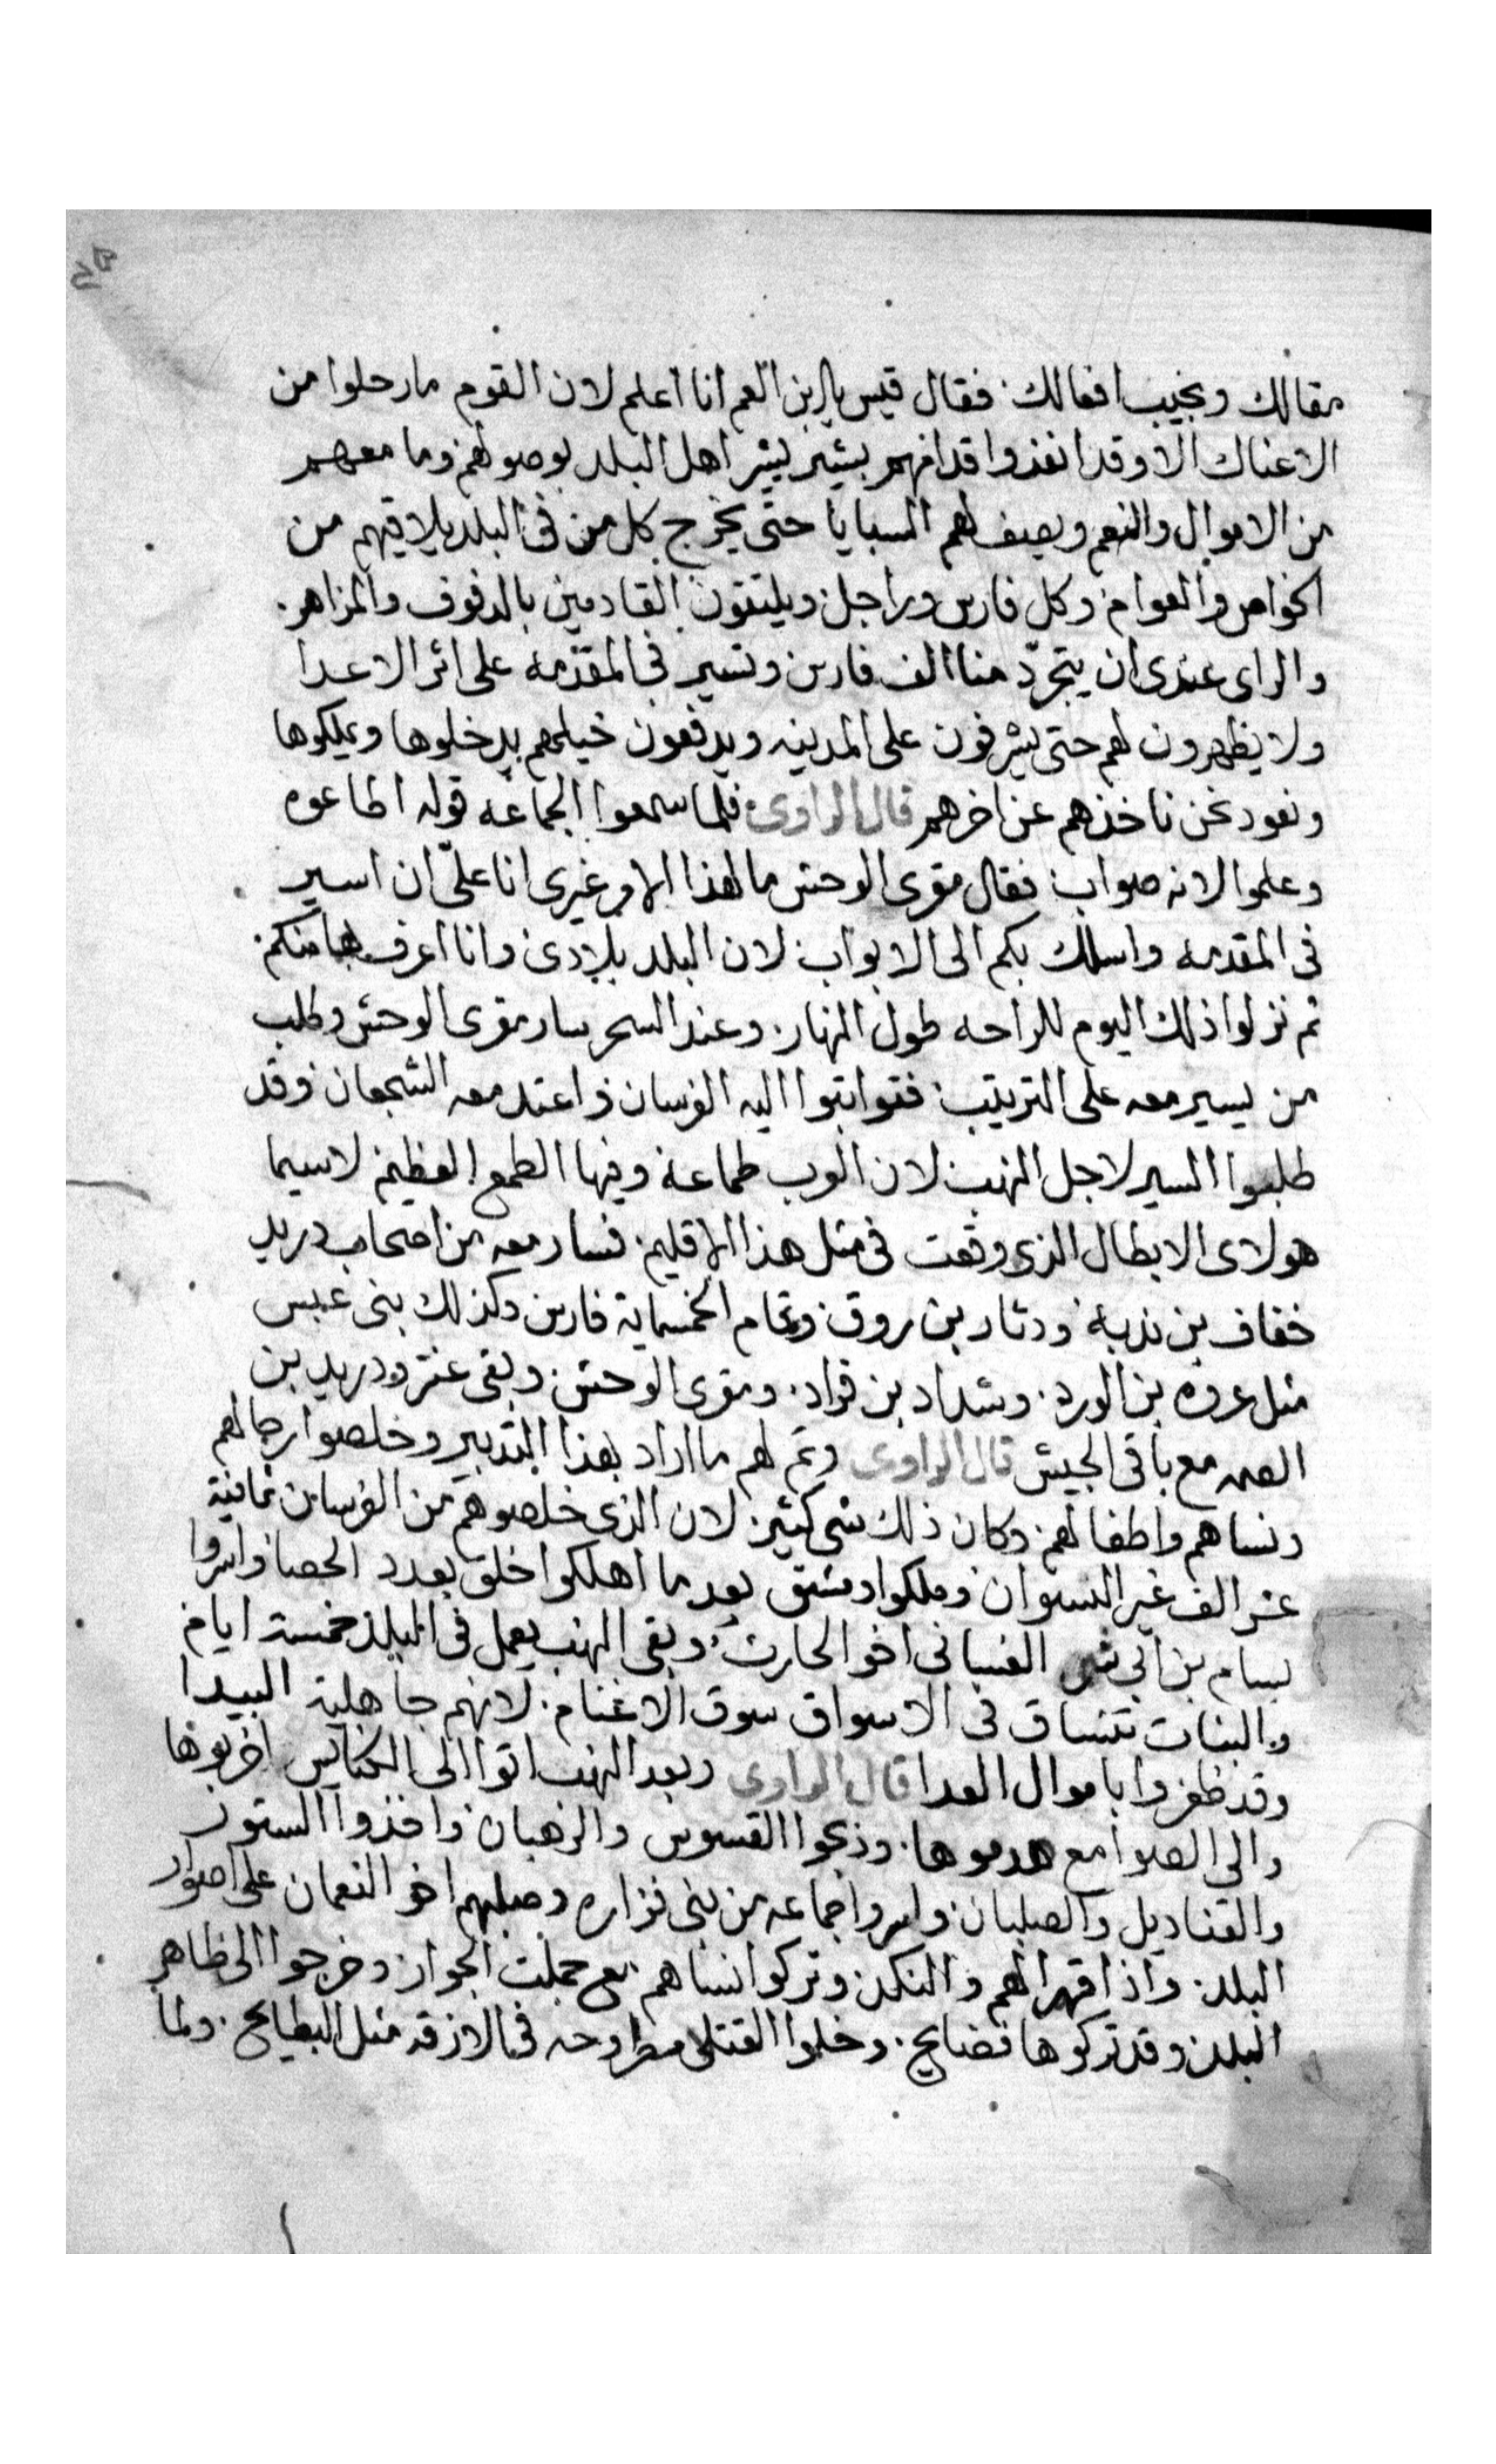 مقالك وبجيب افعالك. فقال قيس يا ابن العم انا اعلم لان القوم مارحلوا من
الاعناك الا وقد انفذوا قدامهم بشير يبشر اهل البلد بوصولهم وما معهم
من الاموال والنعم ويصف لهم السبايا حتى يخرج كل من في البلد يلاقيهم من
الخواص والعوام وكل فارس وراجل ويلتقون القادمين بالدفوف والمزاهر.
والراى عندى ان يتجرّد منا الف فارس وتسير في المقدمه على اثر الاعدا
ولا يظهرون لهم حتى يشرفون على المدينه ويدفعون خيلهم يدخلوها ويملكوها
ونعود نحن ناخذهم عن اخرهم قال الراوى فلما سمعوا الجماعه قوله اطاعوه
وعلموا لانه صواب فقال مقرى الوحش ما لهذا الامر غيرى انا علىّ ان اسير
فى المقدمه واسلك بكم الى الابواب لان البلد بلادى وانا اعرف بها منكم.
ثم نزلوا ذلك اليوم للراحه طول النهار وعند السحر سار مقرى الوحش وطلب
من يسير معه على الترتيب فتواثبوا اليه الفرسان واعتد معه الشجعان وقد
طلبوا السير لاجل النهب لان العرب طماعة وفيها الطمع العظيم لاسيما
هولاى الابطال الذى وقعت فى مثل هذا الاقليم. فسار معه من اصحاب دريد
خفاف بن ندبة ودثار بن روق وتمام الخمسماية فارس وكذلك بنى عبس
مثل عروه بن الورد. وشداد بن قراد. ومقرى الوحش. وبقى عنتر ودريد بن
الصمه مع باقى الجيش قال الراوى وتم لهم ما اراد بهذا التدبير وخلصوا رجالهم
ونساهم واطفالهم وكان ذلك شى كثير. لان الذى خلصوهم من الفرسان ثمانية
عشر الف غير النسوان وملكوا دمشق بعد ما اهلكوا خلق بعدد الحصا واسروا
بسام بن ابى شمر الغسانى اخو الحارث وبقى النهب يعمل فى البلد خمسة ايام
والبنات تنساق فى الاسواق سوق الاغنام. لانهم جاهلية البيدا
وقد ظفروا باموال العدا قال الراوى وبعد النهب اتوا الى الكنايس اخربوها
والى الصوامع هدموها. وذبحوا القسوس والرهبان واخذوا الستور
والقناديل والصلبان واسروا جماعه من بنى فزاره وصلبهم اخو النعمان على اصوار
البلد. واذاقهم الهم والنكد وتركوا نساهم مع جملت الجوار وخرجوا الى ظاهر
البلد وقد تركوها فضايح. وخلوا القتلى مطروحه فى الازقه مثل البطايح. ولما